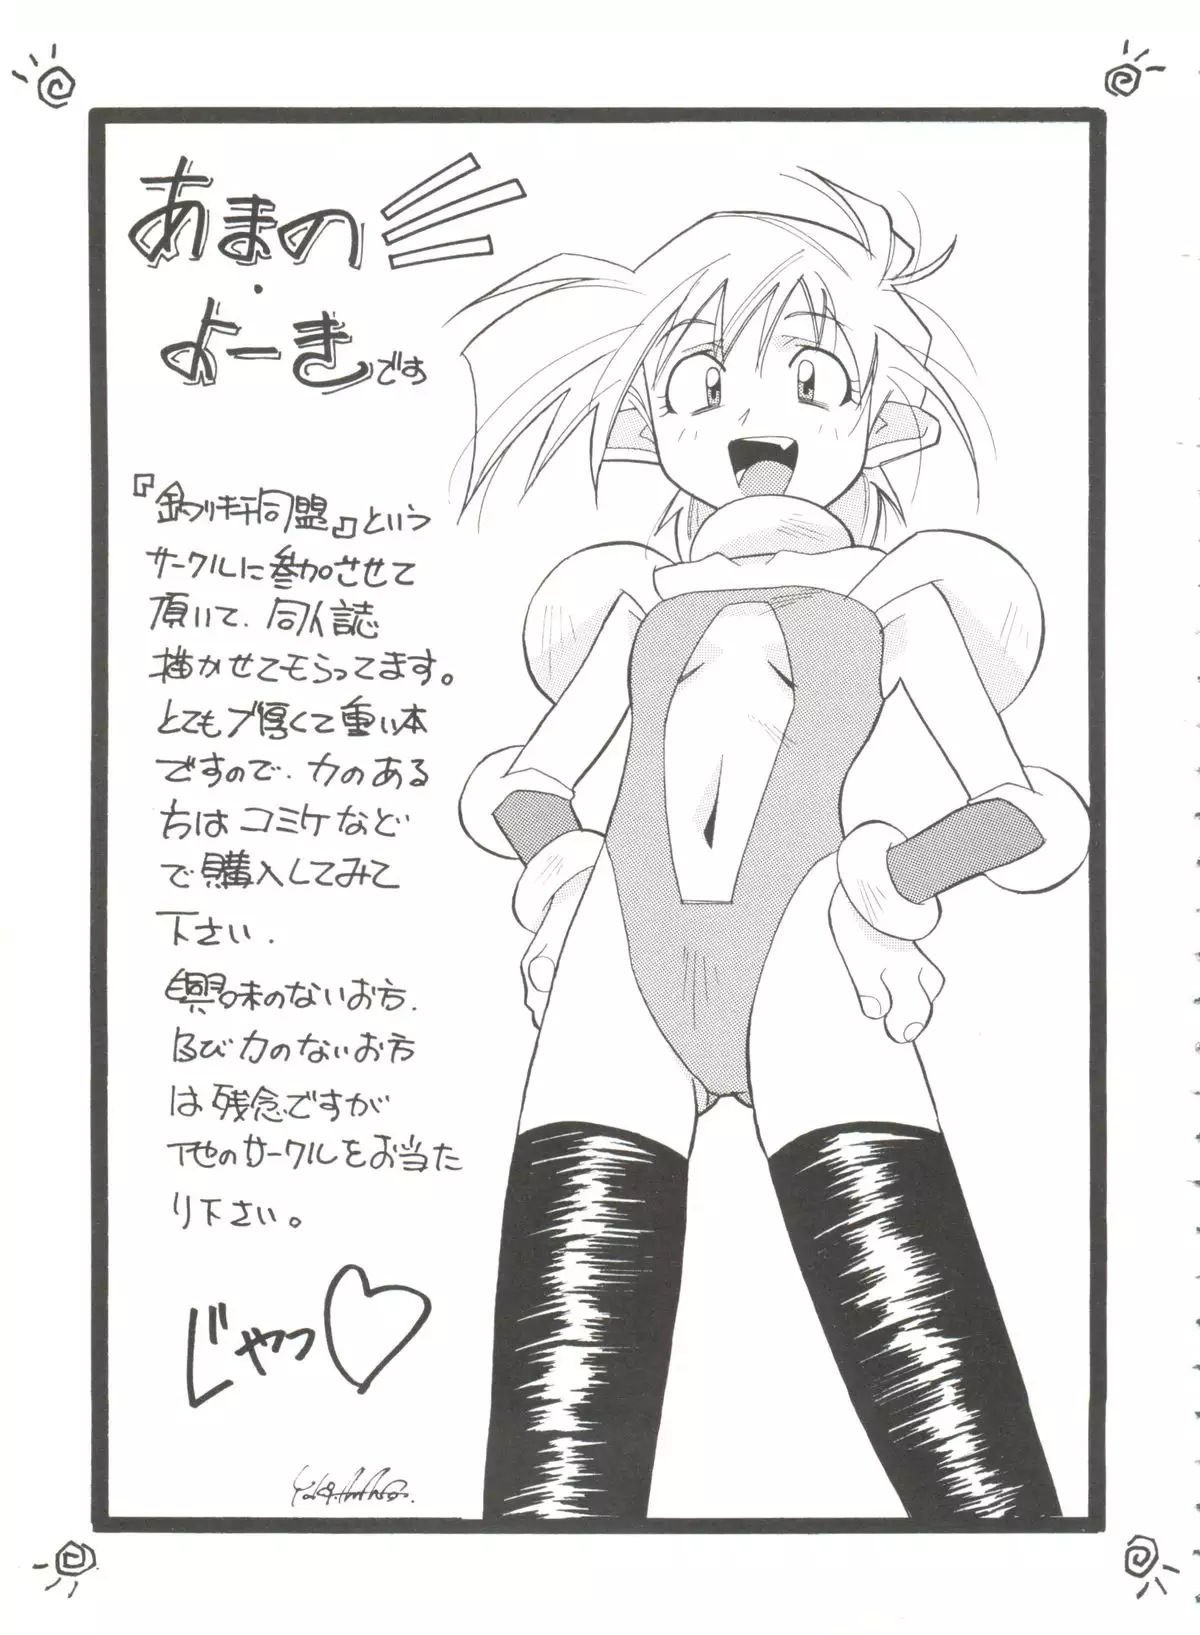 あまの
・
よーきです
『釣りキチ同盟』という
サークルに参加させて
頂いて、同人誌
描かせてモらってます。
とてもブ厚くて重い本
ですので、力のある
方はコミケなど
で購入してみて
下さい.
興味のないお方.
及び力のないお方
は残念ですが
他のサークルをお当た
り下さい。
じゃっ♡